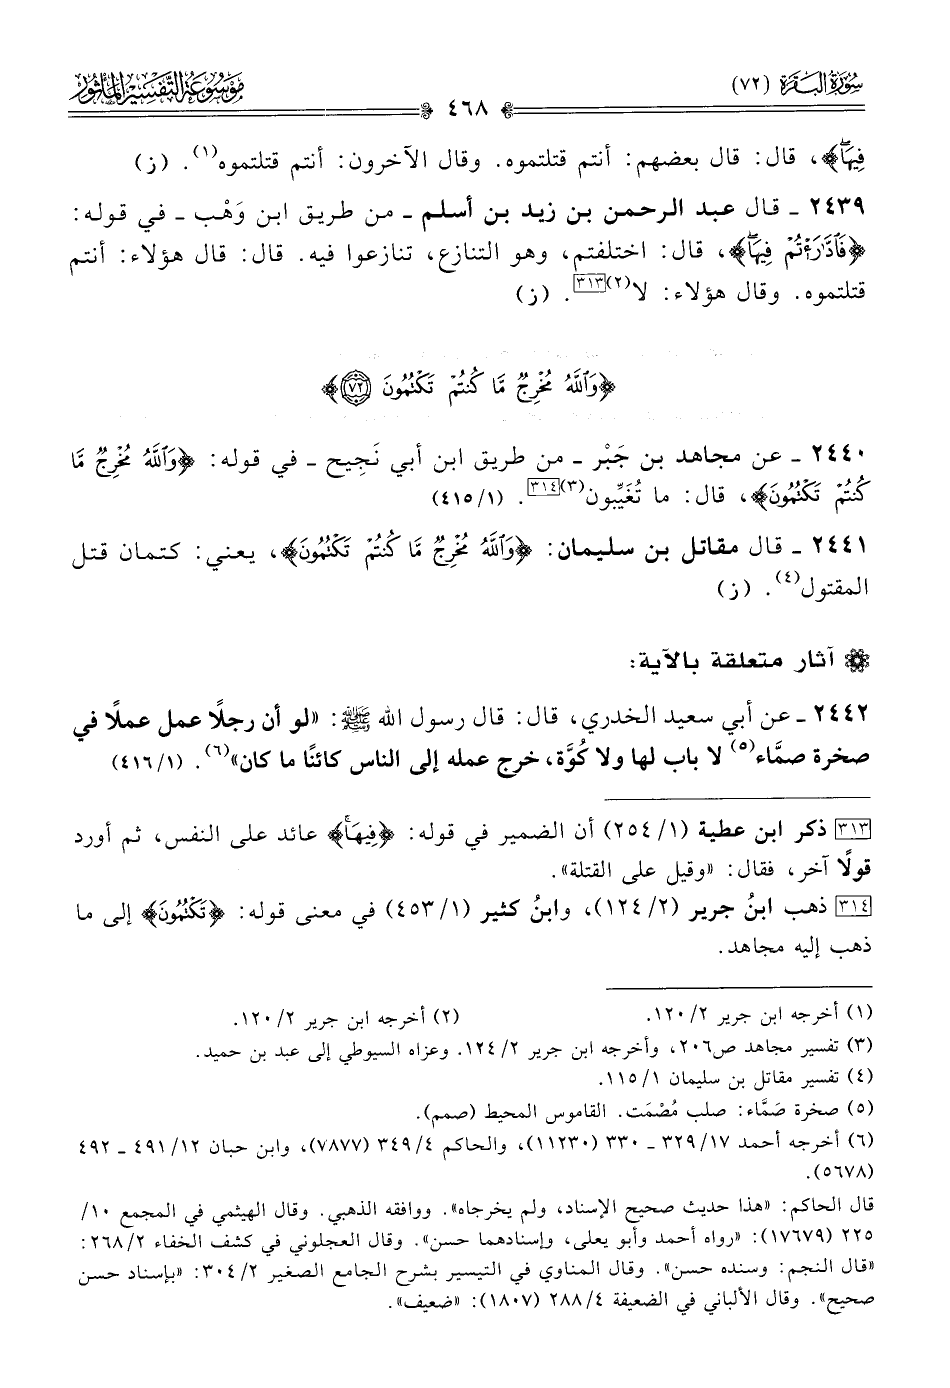 سُورَةُ البَقَرَة (٧٢)
٤٦٨
مَوْسُوعَة التَّفْسِير المَأْثُور
فِيهَا﴾، قال: قال بعضهم: أنتم قتلتموه. وقال الآخرون: أنتم قتلتموه(١). (ز)
٢٤٣٩ ـ قال عبد الرحمن بن زيد بن أسلم ـ من طريق ابن وَهْب ـ في قوله:
﴿فَٱدَّٰرَْٰٔتُمْ فِيهَا﴾، قال: اختلفتم، وهو التنازع، تنازعوا فيه. قال: قال هؤلاء: أنتم
قتلتموه. وقال هؤلاء: لا(٢)[٣١٣]. (ز)
﴿وَٱللَّهُ مُخْرِجٌ مَّا كُنتُمْ تَكْتُمُونَ ٧٢﴾
٢٤٤٠ ـ عن مجاهد بن جَبْر ـ من طريق ابن أبي نَجِيح ـ في قوله: ﴿وَٱللَّهُ مُخْرِجٌ مَّا
كُنتُمْ تَكْتُمُونَ﴾، قال: ما تُغَيِّبون(٣)[٣١٤]. (٤١٥/١)
٢٤٤١ ـ قال مقاتل بن سليمان: ﴿وَٱللَّهُ مُخْرِجٌ مَّا كُنتُمْ تَكْتُمُونَ﴾، يعني: كتمان قتل
المقتول(٤). (ز)
آثار متعلقة بالآية:
٢٤٤٢ ـ عن أبي سعيد الخدري، قال: قال رسول الله ﷺ: «لو أن رجلًا عمل عملًا في
صخرة صمَّاء(٥) لا باب لها ولا كُوَّة، خرج عمله إلى الناس كائنًا ما كان»(٦). (٤١٦/١)
[٣١٣] ذكر ابن عطية (٢٥٤/١) أن الضمير في قوله: ﴿فِيهَا﴾ عائد على النفس، ثم أورد
قولًا آخر، فقال: «وقيل على القتلة».
[٣١٤] ذهب ابنُ جرير (١٢٤/٢)، وابنُ كثير (٤٥٣/١) في معنى قوله: ﴿تَكْتُمُونَ﴾ إلى ما
ذهب إليه مجاهد.
(١) أخرجه ابن جرير ١٢٠/٢. (٢) أخرجه ابن جرير ١٢٠/٢.
(٣) تفسير مجاهد ص٢٠٦، وأخرجه ابن جرير ١٢٤/٢. وعزاه السيوطي إلى عبد بن حميد.
(٤) تفسير مقاتل بن سليمان ١١٥/١.
(٥) صخرة صَمَّاء: صلب مُصْمَت. القاموس المحيط (صمم).
(٦) أخرجه أحمد ٣٢٩/١٧ ـ ٣٣٠ (١١٢٣٠)، والحاكم ٣٤٩/٤ (٧٨٧٧)، وابن حبان ٤٩١/١٢ ـ ٤٩٢
(٥٦٧٨).
قال الحاكم: «هذا حديث صحيح الإسناد، ولم يخرجاه». ووافقه الذهبي. وقال الهيثمي في المجمع ١٠/
٢٢٥ (١٧٦٧٩): «رواه أحمد وأبو يعلى، وإسنادهما حسن». وقال العجلوني في كشف الخفاء ٢٦٨/٢:
«قال النجم: وسنده حسن». وقال المناوي في التيسير بشرح الجامع الصغير ٣٠٤/٢: «بإسناد حسن
صحيح». وقال الألباني في الضعيفة ٢٨٨/٤ (١٨٠٧): «ضعيف».